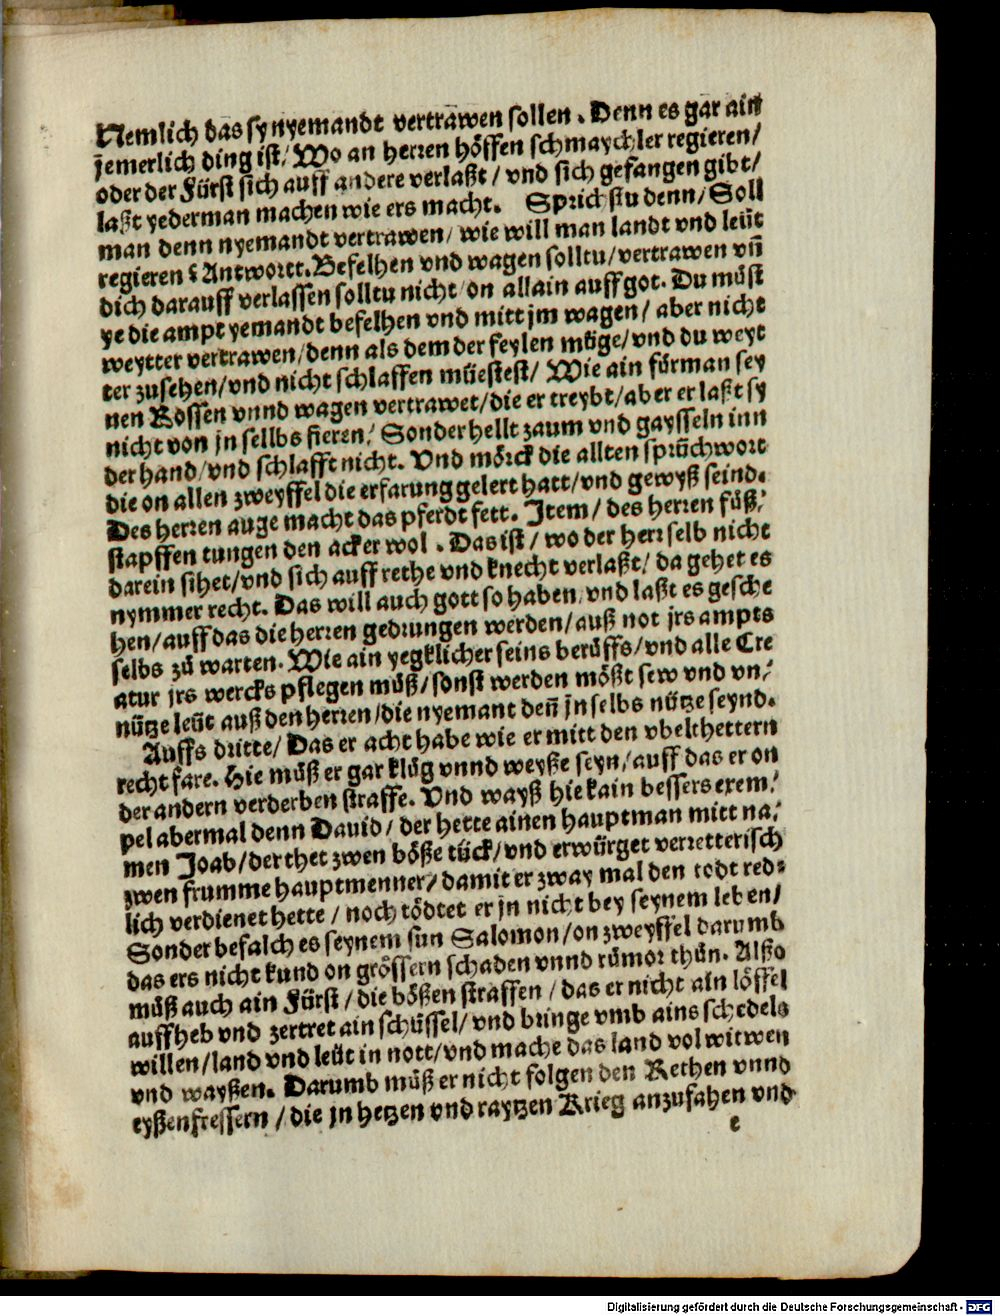 Nemlich das sy nyemandt vertrawen sollen. Denn es gar ain
jemerlich ding ist/ Wo an herren höffen schmaychler regieren/
oder der Fürst sich auff andere verlaßt/ vnd sich gefangen gibt/
laßt yederman machen wie ers macht. Sprichstu denn/ Soll
man denn nyemandt vertrawen/ wie will man landt vnd leüt
regieren? Antwortt. Befelhen vnd wagen solltu/ vertrawen vñ
dich darauff verlassen solltu nicht/ on allain auff got. Du můst
ye die ampt yemandt befelhen vnd mitt jm wagen/ aber nicht
weytter vertrawen/ denn als dem der feylen můge/ vnd du weyt
ter zusehen/ vnd nicht schlaffen müestest/ Wie ain fůrman sey
nen Rossen vnnd wagen vertrawet/ die er treybt/ aber er laßt sy
nicht von jn sellbs fieren/ Sonder hellt zaum vnd gaysseln inn
der hand/ vnd schlafft nicht. Vnd mörck die allten sprüchwort
die on allen zweyffel die erfarung gelert hatt/ vnd gewyß seind.
Des herren auge macht das pferdt fett. Item/ des herren fůß/
stapffen tungen den acker wol. Das ist/ wo der herr selb nicht
darein sihet/ vnd sich auff rethe vnd knecht verlaßt/ da gehet es
nymmer recht. Das will auch gott so haben/ vnd laßt es gesche
hen/ auff das die herren gedrungen werden/ auß not jrs ampts
selbs zů warten. Wie ain yegklicher seins berůffs/ vnd alle Cre
atur jrs wercks pflegen můß/ sonst werden mößt sew vnd vn/
nütze leüt auß den herren/ die nyemant deñ jn selbs nütze seynd.
Auffs dritte/ Das er acht habe wie er mitt den vbelthettern
recht fare. Hie můß er gar klůg vnnd weyße seyn/ auff das er on
der andern verderben straffe. Vnd wayß hie kain bessers exem/
pel abermal denn Dauid/ der hette ainen hauptman mitt na/
men Joab/ der thet zwen böße tück/ vnd erwürget verretterisch
zwen frumme hauptmenner/ damit er zway mal den todt red-
lich verdienet hette/ noch tödtet er jn nicht bey seynem leben/
Sonder befalch es seynem sun Salomon/ on zweyffel darumb
das ers nicht kund on grössern schaden vnnd rümor thůn. Alßo
můß auch ain Fürst/ die bößen straffen/ das er nicht ain löffel
auffheb vnd zertret ain schüssel/ vnd bringe vmb ains schedels
willen/ land vnd leüt in nott/ vnd mache das land vol witwen
vnd wayßen. Darumb můß er nicht folgen den Rethen vnnd
eyßenfressern/ die jn hetzen vnd raytzen Krieg anzufahen vnd
e
Digitalisierung gefördert durch die Deutsche Forschungsgemeinschaft - DFG